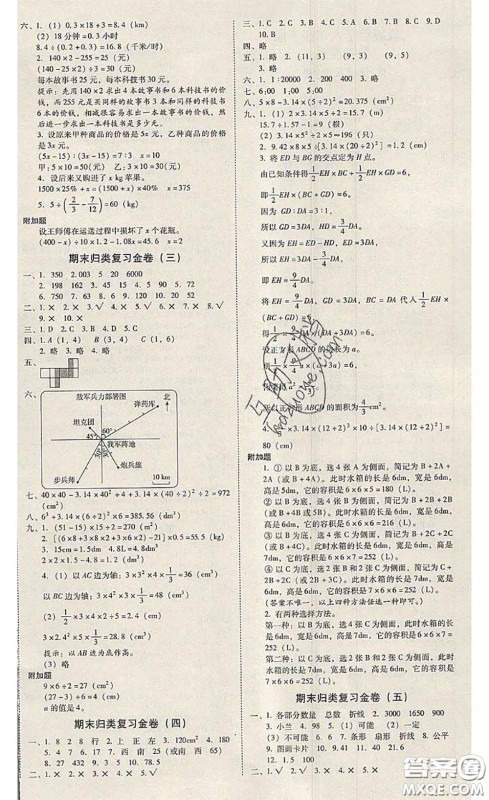 六、1. (1) 0.3×18+3=8.4 (km)
(2) 18分钟=0.3小时
8.4÷(0.2+0.3)=16.8 (千米/时)
2. 140×2-255=25 (元)
(140-25×2)÷3=30 (元)
每本故事书25元，每本科技书30元。
提示：先用140×2求出4本故事书和6本科技书的
价钱，而255元是买同样的故事书3本和同样的科技书
6本的价钱，相减很容易求出一本故事书的价钱，然
后进一步求出一本科技书是多少元。
3. 设原来甲种商品的价格是5x元，乙种商品的价格
是3x元。
(5x-15)∶(3x-15)=7∶3
甲：5×10=50 (元) 乙：3×10=30 (元)
4. 设后来又购进了x kg苹果。
1500×25%+x=(1500+x)×40% x=375
5. 5÷(2/3-7/12)=60 (kg)
附加题
设王师傅在运送过程中损坏了x个花瓶。
(400-x)÷10×1.2-1.08x=45.6 x=2
期末归类复习金卷（三）
一、1. 350 2. 003 5 20 6000
2. 198 152 4. 45 15 4 5. 90 5 72
6. 150 7. 62 8. 5 9. 8 10. 51
二、1. × 2. √ 3. × 4. √ 5. × 6. × 7. × 8. √
9. × 10. ×
三、1. D 2. C 3. B 4. D 5. C
四、1. A (1,4) B (3,4) C (1,6)
2. 略 3. 略
五、
六、
敌军兵力部署图
北
弹药库
坦克团
60°
45°
我军阵地
炮兵雄
步兵师
10 km
七、40×40-3.14×40²÷4+3.14×(40÷2)²÷2=972
(cm²)
八、6³+3.14×(6÷2)²×6=385.56 (dm³)
九、1. (51-15)×15÷2=270 (m²)
2. [(6×8+3×8+3×6)×2-21]×0.5=55.5 (kg)
3. 15cm=1.5dm 4.8L=4.8dm³
2×2×1.5-4.8=1.2 (dm³)
4. (1) 以AC边为轴：3×3²×4×1/3=36 (cm³)
以BC边为轴：3×4²×3×1/3=48 (cm³)
(2) 1/2×3×4×2÷5=2.4 (cm)
3×2.4²×5×1/3=28.8 (cm³)
提示：以AB边为底作高。
(3) 略
附加题
9×6÷2=27 (cm)
(27-3)÷6=4 (cm)
a的值是4。
期末归类复习金卷（四）
一、1. 8 2 8 行 2. 上 正 左 3. 120cm² 4. 180
5. 4 7 6. 17 7. 西 南 25 (或南 西 65)
8. 27 432 9. 3 5 10. 78.5
二、1. × 2. × 3. √ 4. √ 5. √
三、1. C 2. C 3. A 4. B 5. B 6. D 7. B 8. C 9. D
10. B
四、略
五、1. 略 2. (5,7) (9,3) (9,5)
3. 略
六、1. 1∶20000 2. 280 400 200 3. 略
七、6∶00 1∶00 5. √
八、5×8-3.14×(5÷2)²=20.375 (cm²)
九、1. 3.14×2×5÷2=15.7 (m)
15.7÷1.57-1=9 (根)
2. (1) 3.14×5²×5÷2=196 (只)
2. 9.42×8×5÷[3.14×(20÷2)²]=1.2 (cm)
3. 将ED与BG的交点定为H点。
由已知条件得1/2EH×(BC+GD)=6。
即1/2EH×(BC+GD)=6。
因为GD∶DA=3∶1，
所以GD=3DA，HD=3/4DA。
又因为EH=ED-HD，ED=3DA，
所以EH=3DA-3/4DA，
即EH=9/4DA。
将EH=9/4DA，GD=3DA，BC=DA代入1/2EH×
(BC+GD)=6，
得1/2×9/4DA×(DA+3DA)=6。
设正方形ABCD的边长为a。
所以正方形ABCD的面积为4/3cm²。
4. 3.14×(12÷2)²×10×1/3÷[3.14×(12÷2)²]=
80 (cm)
附加题
1. ①以B为底，选4张A为侧面，简记为B+2A+
(2A)(或B+4A)。此时水箱的长是6dm，宽是6dm，
高是5dm，它的容积是6×6×5=180 (L)。
②以A为底，选4张B为侧面，简记为A+2B+2B
(或A+4B)。此时水箱的长是6dm，宽是5dm，
高是6dm，它的容积是6×5×6=180 (L)。
③以B为底，选4张C为侧面，简记为B+2C+2C
(或B+4C)。此时水箱的长是6dm，宽是6dm，
高是7dm，它的容积是6×6×7=252 (L)。
④以C为底，选2张B和2张C为侧面，简记为C
+2B+2C (或2B+3C)。此时水箱的长是7dm，宽
是6dm，高是6dm，它的容积是7×6×6=252 (L)。
(答案不唯一，以上四种方法任选一种即可。)
2. 有两种选择方法。
第一种：以B为底，选4张C为侧面，此时水箱的
长是6dm，宽是6dm，高是7dm，它的容积是6×6×
7=252 (L)。
第二种：以C为底，选2张B和2张C为侧面，此时
水箱的长是7dm，宽是6dm，高是6dm，它的容积是
7×6×6=252 (L)。
期末归类复习金卷（五）
一、1. 各部分数量 总数 折线 2. 3000 1650 900
3. 小兰 4. (98) 可能 (2) 一定 (1) 不可能
5. 7 66 6. 0 7. 条形 扇形 折线 8. 公平
9. 图画卡片 10. 40 11. √
12. 1.5 100
二、1. × 2. √ 3. × 4. × 5. ×
答案圈
MXQE.COM